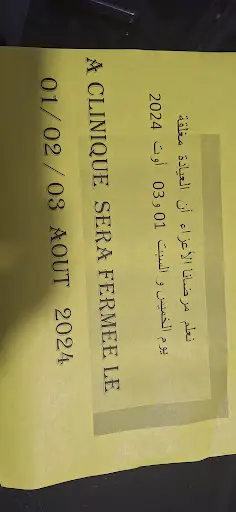 نعلم مرضانا الأعزاء أن العيادة مغلقة
يوم الخميس و السبت 01 و 03 أوت 2024
A CLINIQUE SERA FERMEE LE
01/02/03 AOUT 2024